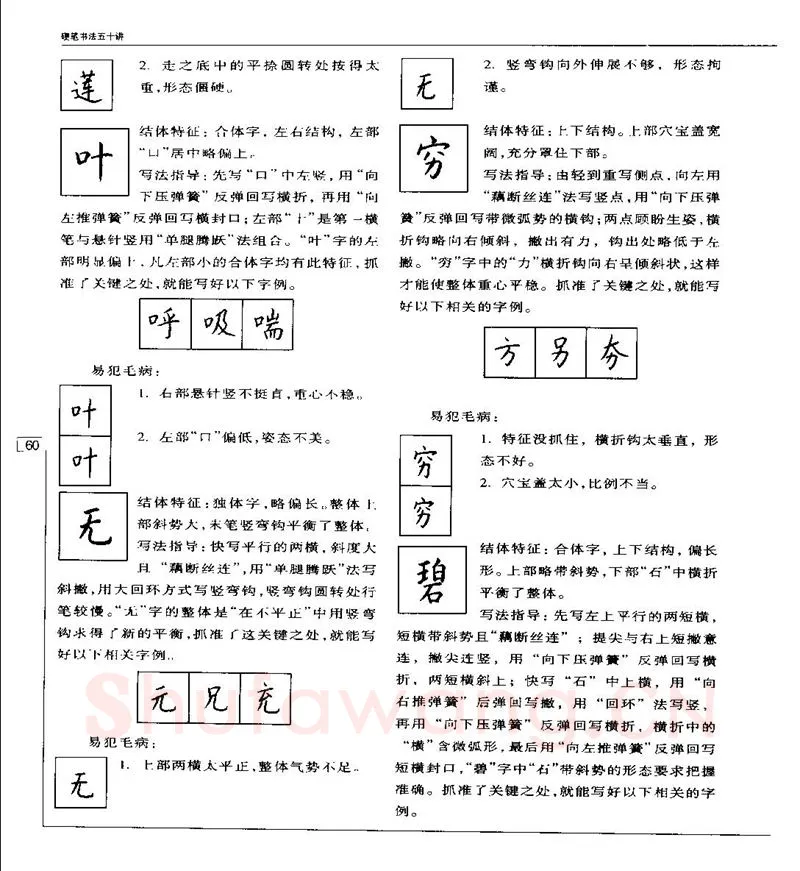 硬笔书法五十讲
莲
2. 走之底中的平捺圆转处按得太
重,形态僵硬。
叶
结体特征:合体字,左右结构,左部
“口”居中略偏上。
写法指导:先写“口”中左竖,用“向
下压弹簧”反弹回写横折,再用“向
左推弹簧”反弹回写横封口;左部“十”是第一横
笔与悬针竖用“单腿腾跃”法组合。“叶”字的左
部明显偏上、凡左部小的合体字均有此特征,抓
准了关键之处,就能写好以下字例。
呼 吸 喘
易犯毛病:
叶
1. 右部悬针竖不挺直,重心不稳。
叶
2. 左部“口”偏低,姿态不美。
60
无
结体特征:独体字,略偏长。整体上
部斜势大,末笔竖弯钩平衡了整体。
写法指导:快写平行的两横,斜度大
且“藕断丝连”,用“单腿腾跃”法写
斜撇,用大回环方式写竖弯钩,竖弯钩圆转处行
笔较慢。“无”字的整体是“在不平正”中用竖弯
钩求得了新的平衡,抓准了这关键之处,就能写
好以下相关字例。
元 兄 充
易犯毛病:
无
1. 上部两横太平正,整体气势不足。
无
2. 竖弯钩向外伸展不够,形态拘
谨。
穷
结体特征:上下结构。上部穴宝盖宽
阔,充分罩住下部。
写法指导:由轻到重写侧点,向左用
“藕断丝连”法写竖点,用“向下压弹
簧”反弹回写带微弧势的横钩;两点顾盼生姿,横
折钩略向右倾斜,撇出有力,钩出处略低于左
撇。“穷”字中的“力”横折钩向右呈倾斜状,这样
才能使整体重心平稳。抓准了关键之处,就能写
好以下相关的字例。
方 另 夯
易犯毛病:
穷
1. 特征没抓住,横折钩太垂直,形
态不好。
穷
2. 穴宝盖太小,比例不当。
碧
结体特征:合体字,上下结构,偏长
形。上部略带斜势,下部“石”中横折
平衡了整体。
写法指导:先写左上平行的两短横,
短横带斜势且“藕断丝连”;提尖与右上短撇意
连,撇尖连竖,用“向下压弹簧”反弹回写横
折,两短横斜上;快写“石”中上横,用“向
右推弹簧”后弹回写撇,用“回环”法写竖,
再用“向下压弹簧”反弹回写横折,横折中的
“横”含微弧形,最后用“向左推弹簧”反弹回写
短横封口,“碧”字中“石”带斜势的形态要求把握
准确。抓准了关键之处,就能写好以下相关的字
例。
Shufawang.CN